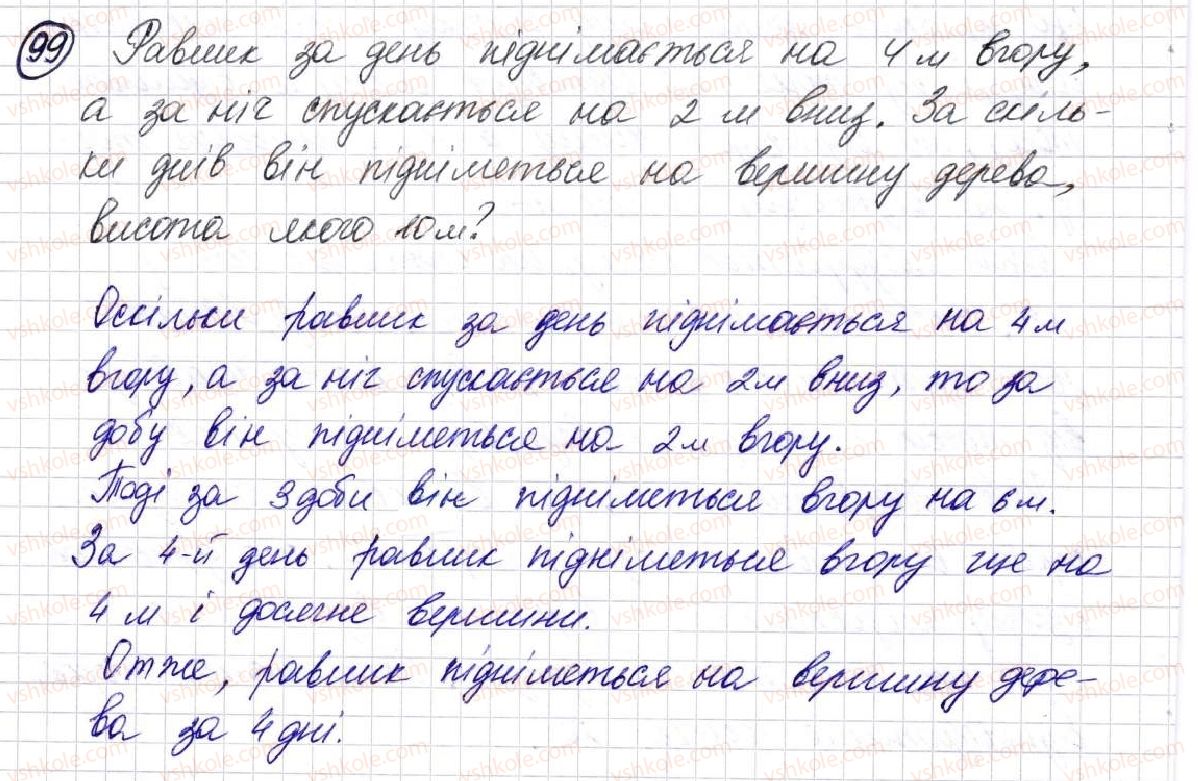 99 Равлик за день піднімається на 4 м вгору,
а за ніч спускається на 2 м вниз. За скіль-
ки днів він підніметься на вершину дерева,
висота якого 10 м?
Оскільки равлик за день піднімається на 4 м
вгору, а за ніч спускається на 2 м вниз, то за
добу він підніметься на 2 м вгору.
Тоді за 3 доби він підніметься вгору на 6 м.
За 4-й день равлик підніметься вгору ще на
4 м і досягне вершини.
Отже, равлик підніметься на вершину дере-
ва за 4 дні.